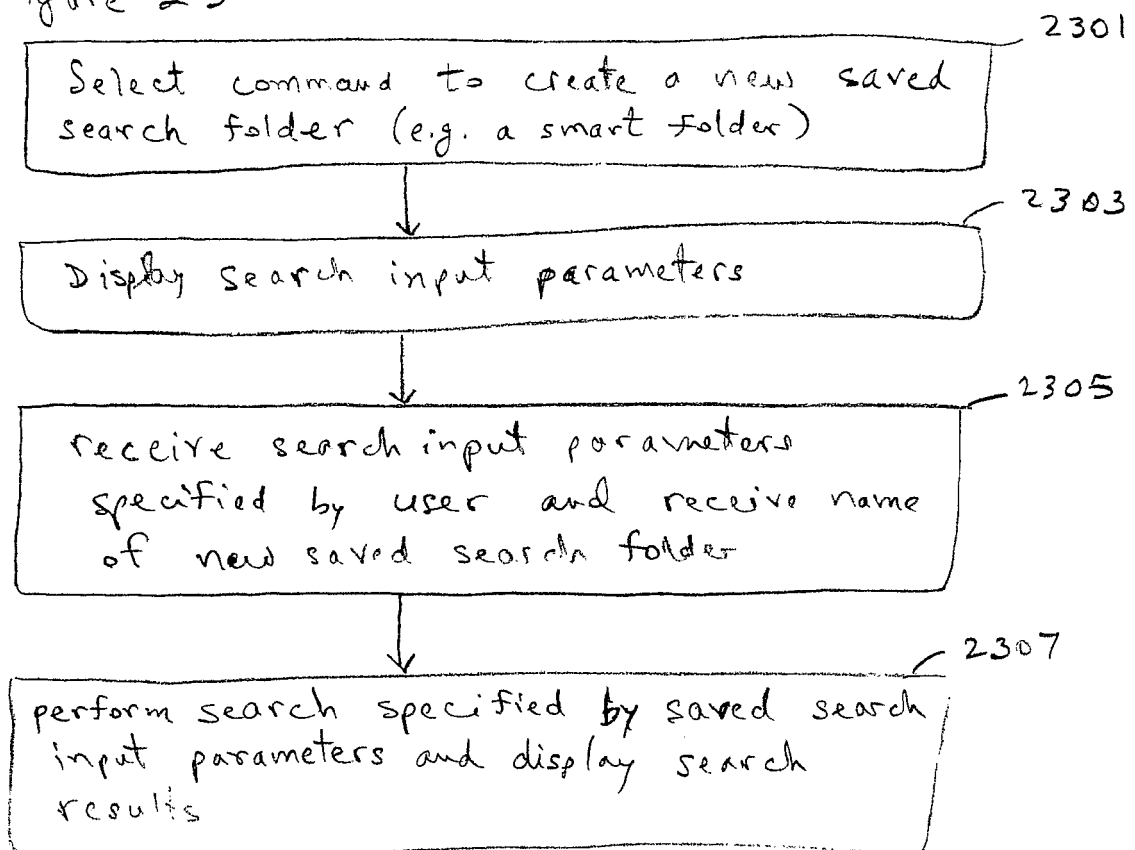 gure 23
2301
Select command to create a new saved
search folder (e.g. a smart folder)
2303
Display search input parameters
2305
receive search input parameters
specified by user and receive name
of new saved search folder
2307
perform search specified by saved search
input parameters and display search
results